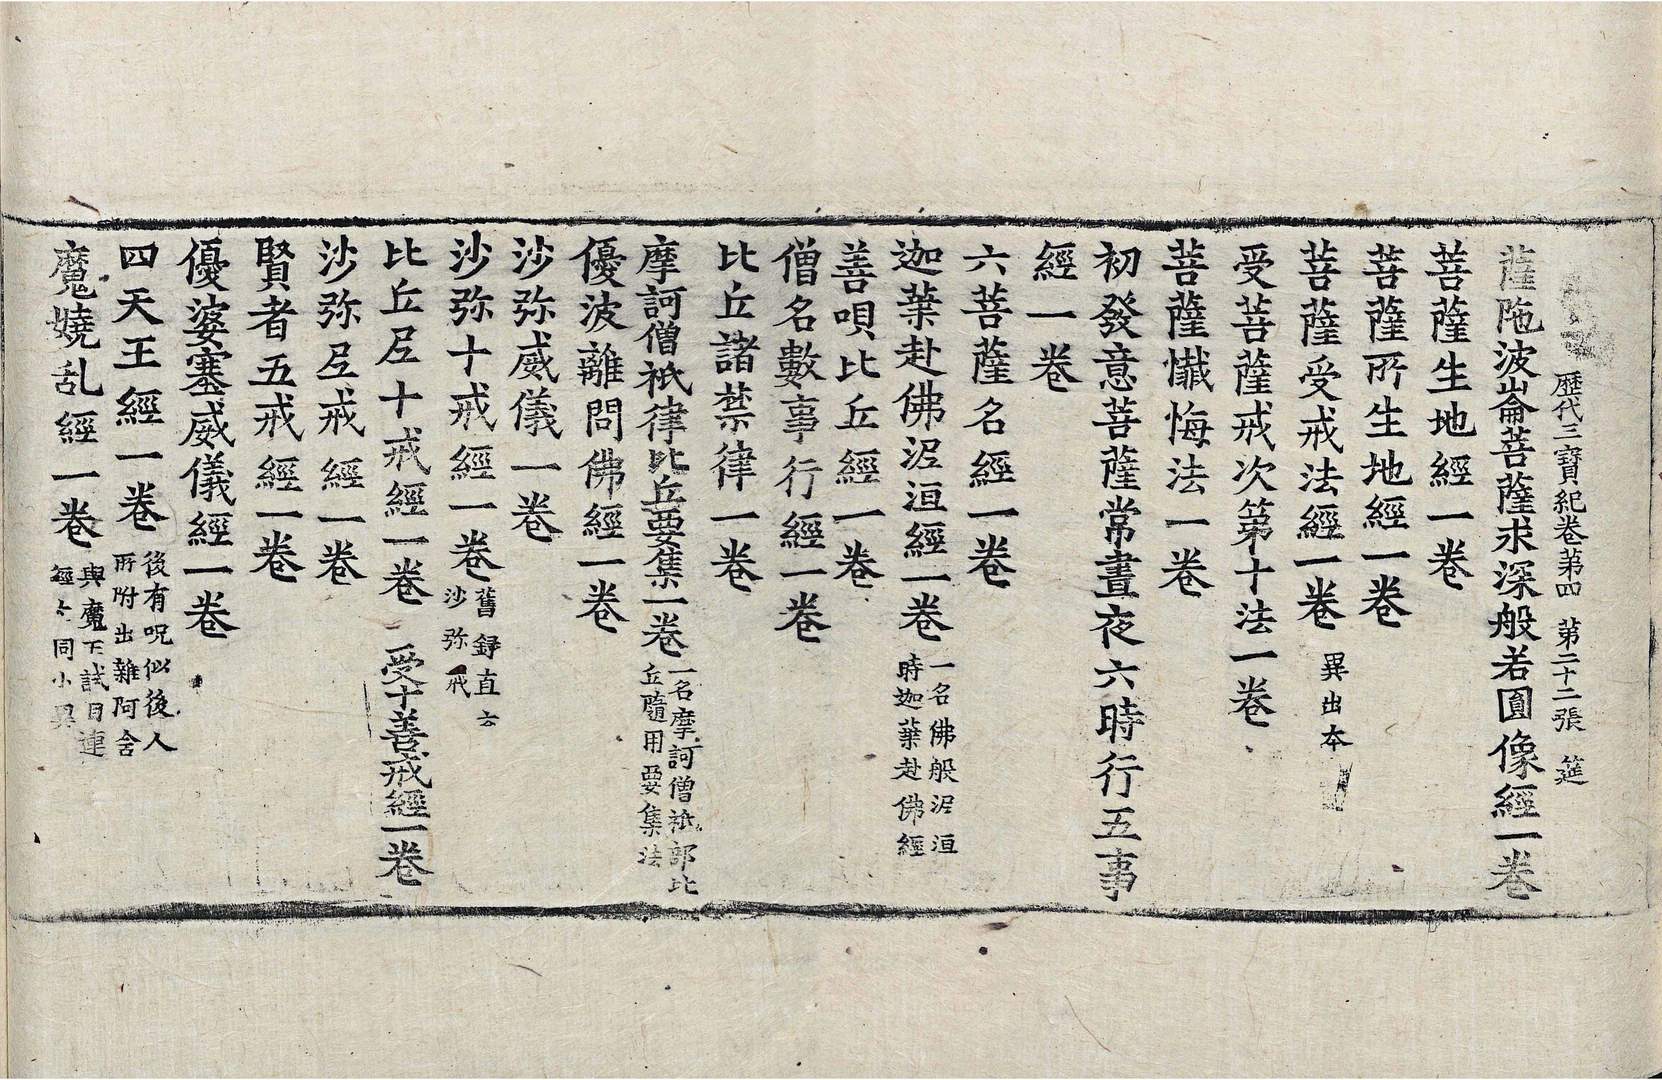 歷代三寶紀卷第四　第二十二張　筵
薩陁波崙菩薩求深般若圓像經一卷
菩薩生地經一卷
菩薩所生地經一卷
菩薩受戒法經一卷 異出本
受菩薩戒次第十法一卷
菩薩懺悔法一卷
初發意菩薩常晝夜六時行五事
經一卷
六菩薩名經一卷
迦葉赴佛泥洹經一卷 一名佛般泥洹
時迦葉赴佛經
善唄比丘經一卷
僧名數事行經一卷
比丘諸禁律一卷
摩訶僧祇律比丘要集一卷 一名摩訶僧祇部比
丘隨用要集法
優波離問佛經一卷
沙弥威儀一卷
沙弥十戒經一卷 舊録直云
沙弥戒
比丘尼十戒經一卷　受十善戒經一卷
沙弥尼戒經一卷
賢者五戒經一卷
優婆塞威儀經一卷
四天王經一卷 後有呪似後人
所附出雜阿含
魔嬈乱經一卷 與魔王試目連
經大同小異